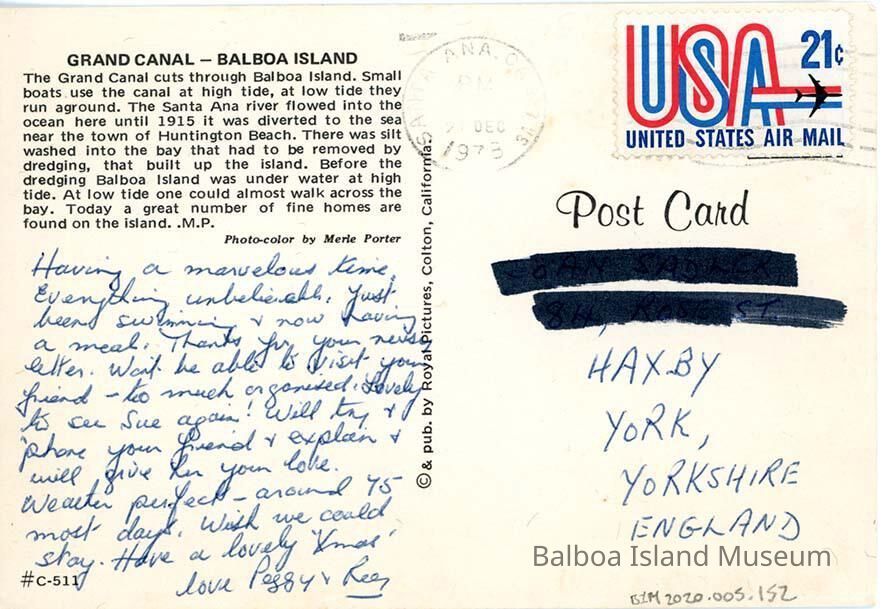 GRAND CANAL — BALBOA ISLAND
The Grand Canal cuts through Balboa Island. Small
boats use the canal at high tide, at low tide they
run aground. The Santa Ana river flowed into the
ocean here until 1915 it was diverted to the sea
near the town of Huntington Beach. There was silt
washed into the bay that had to be removed by
dredging, that built up the island. Before the
dredging Balboa Island was under water at high
tide. At low tide one could almost walk across the
bay. Today a great number of fine homes are
found on the island. .M.P.
Photo-color by Merle Porter
Having a marvelous time.
Everything unbelievable. Just
been swimming & now having
a meal. Thanks for your news
letter. Won't be able to visit your
friend - too much organised. Lovely
to see Sue again! Will try &
'phone your friend & explain &
will give her your love.
Weather perfect - around 75
most days. Wish we could
stay. Have a lovely 'Xmas'
love Peggy & Reg
#C-511
© & pub. by Royal Pictures, Colton, California.
SANTA ANA, CA
PM
DEC
1973
USA 21¢
UNITED STATES AIR MAIL
Post Card
HAXBY
YORK,
YORKSHIRE
ENGLAND
Balboa Island Museum
BIM2020.005.152